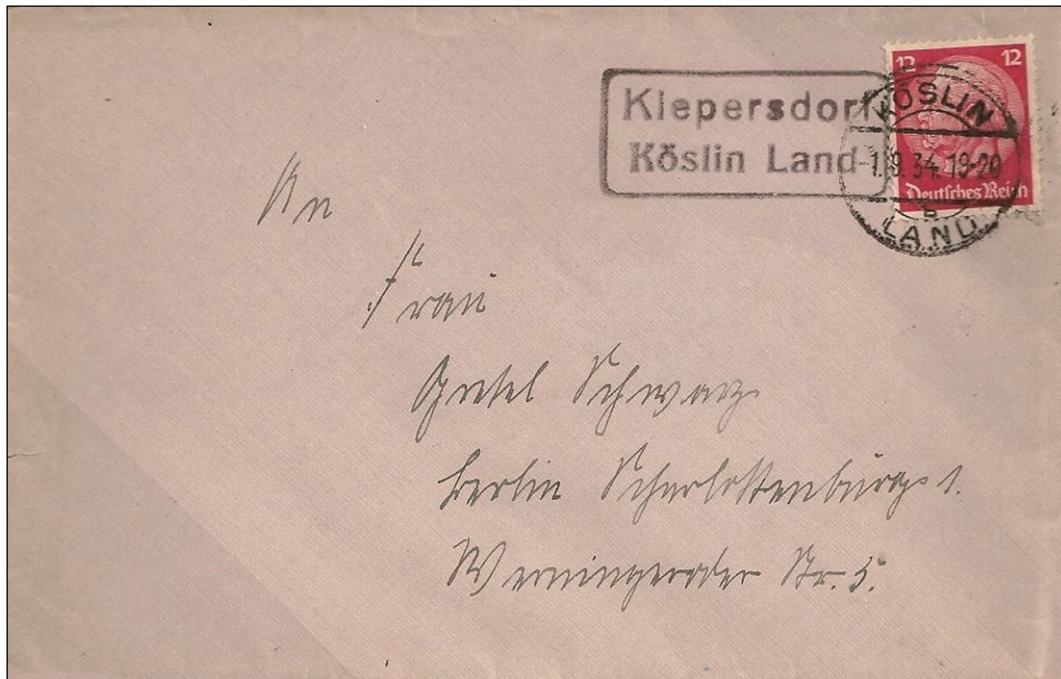 12 12
Kiepersdorf
Köslin Land
KÖSLIN
-1.9.34.19-20
Deutsches Reich
b
LAND
An
Frau
Gretel Schwarz
Berlin Scharlottenburg 1.
Werningeroder Str. 5.